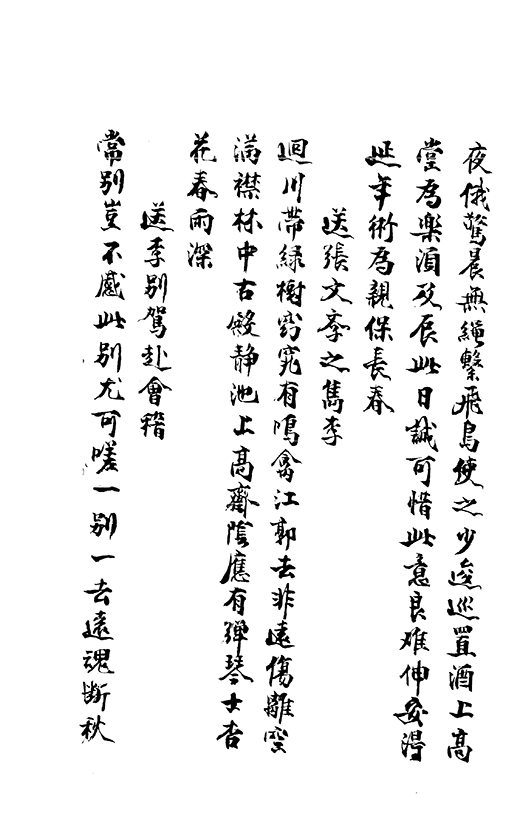 夜俄驚晨無繩繫飛烏使之少逡巡置酒上高
堂為樂須及辰此日誠可惜此意良难伸安得
延年術為親保長春
送張文季之雋李
迴川帶緑樹窈窕有鳴禽江郭去非遠傷離空
满襟林中古殿静池上高齋陰應有弹琴士杏
花春雨深
送李别駕赴會稽
常别豈不感此别尤可嗟一别一去遠魂断秋